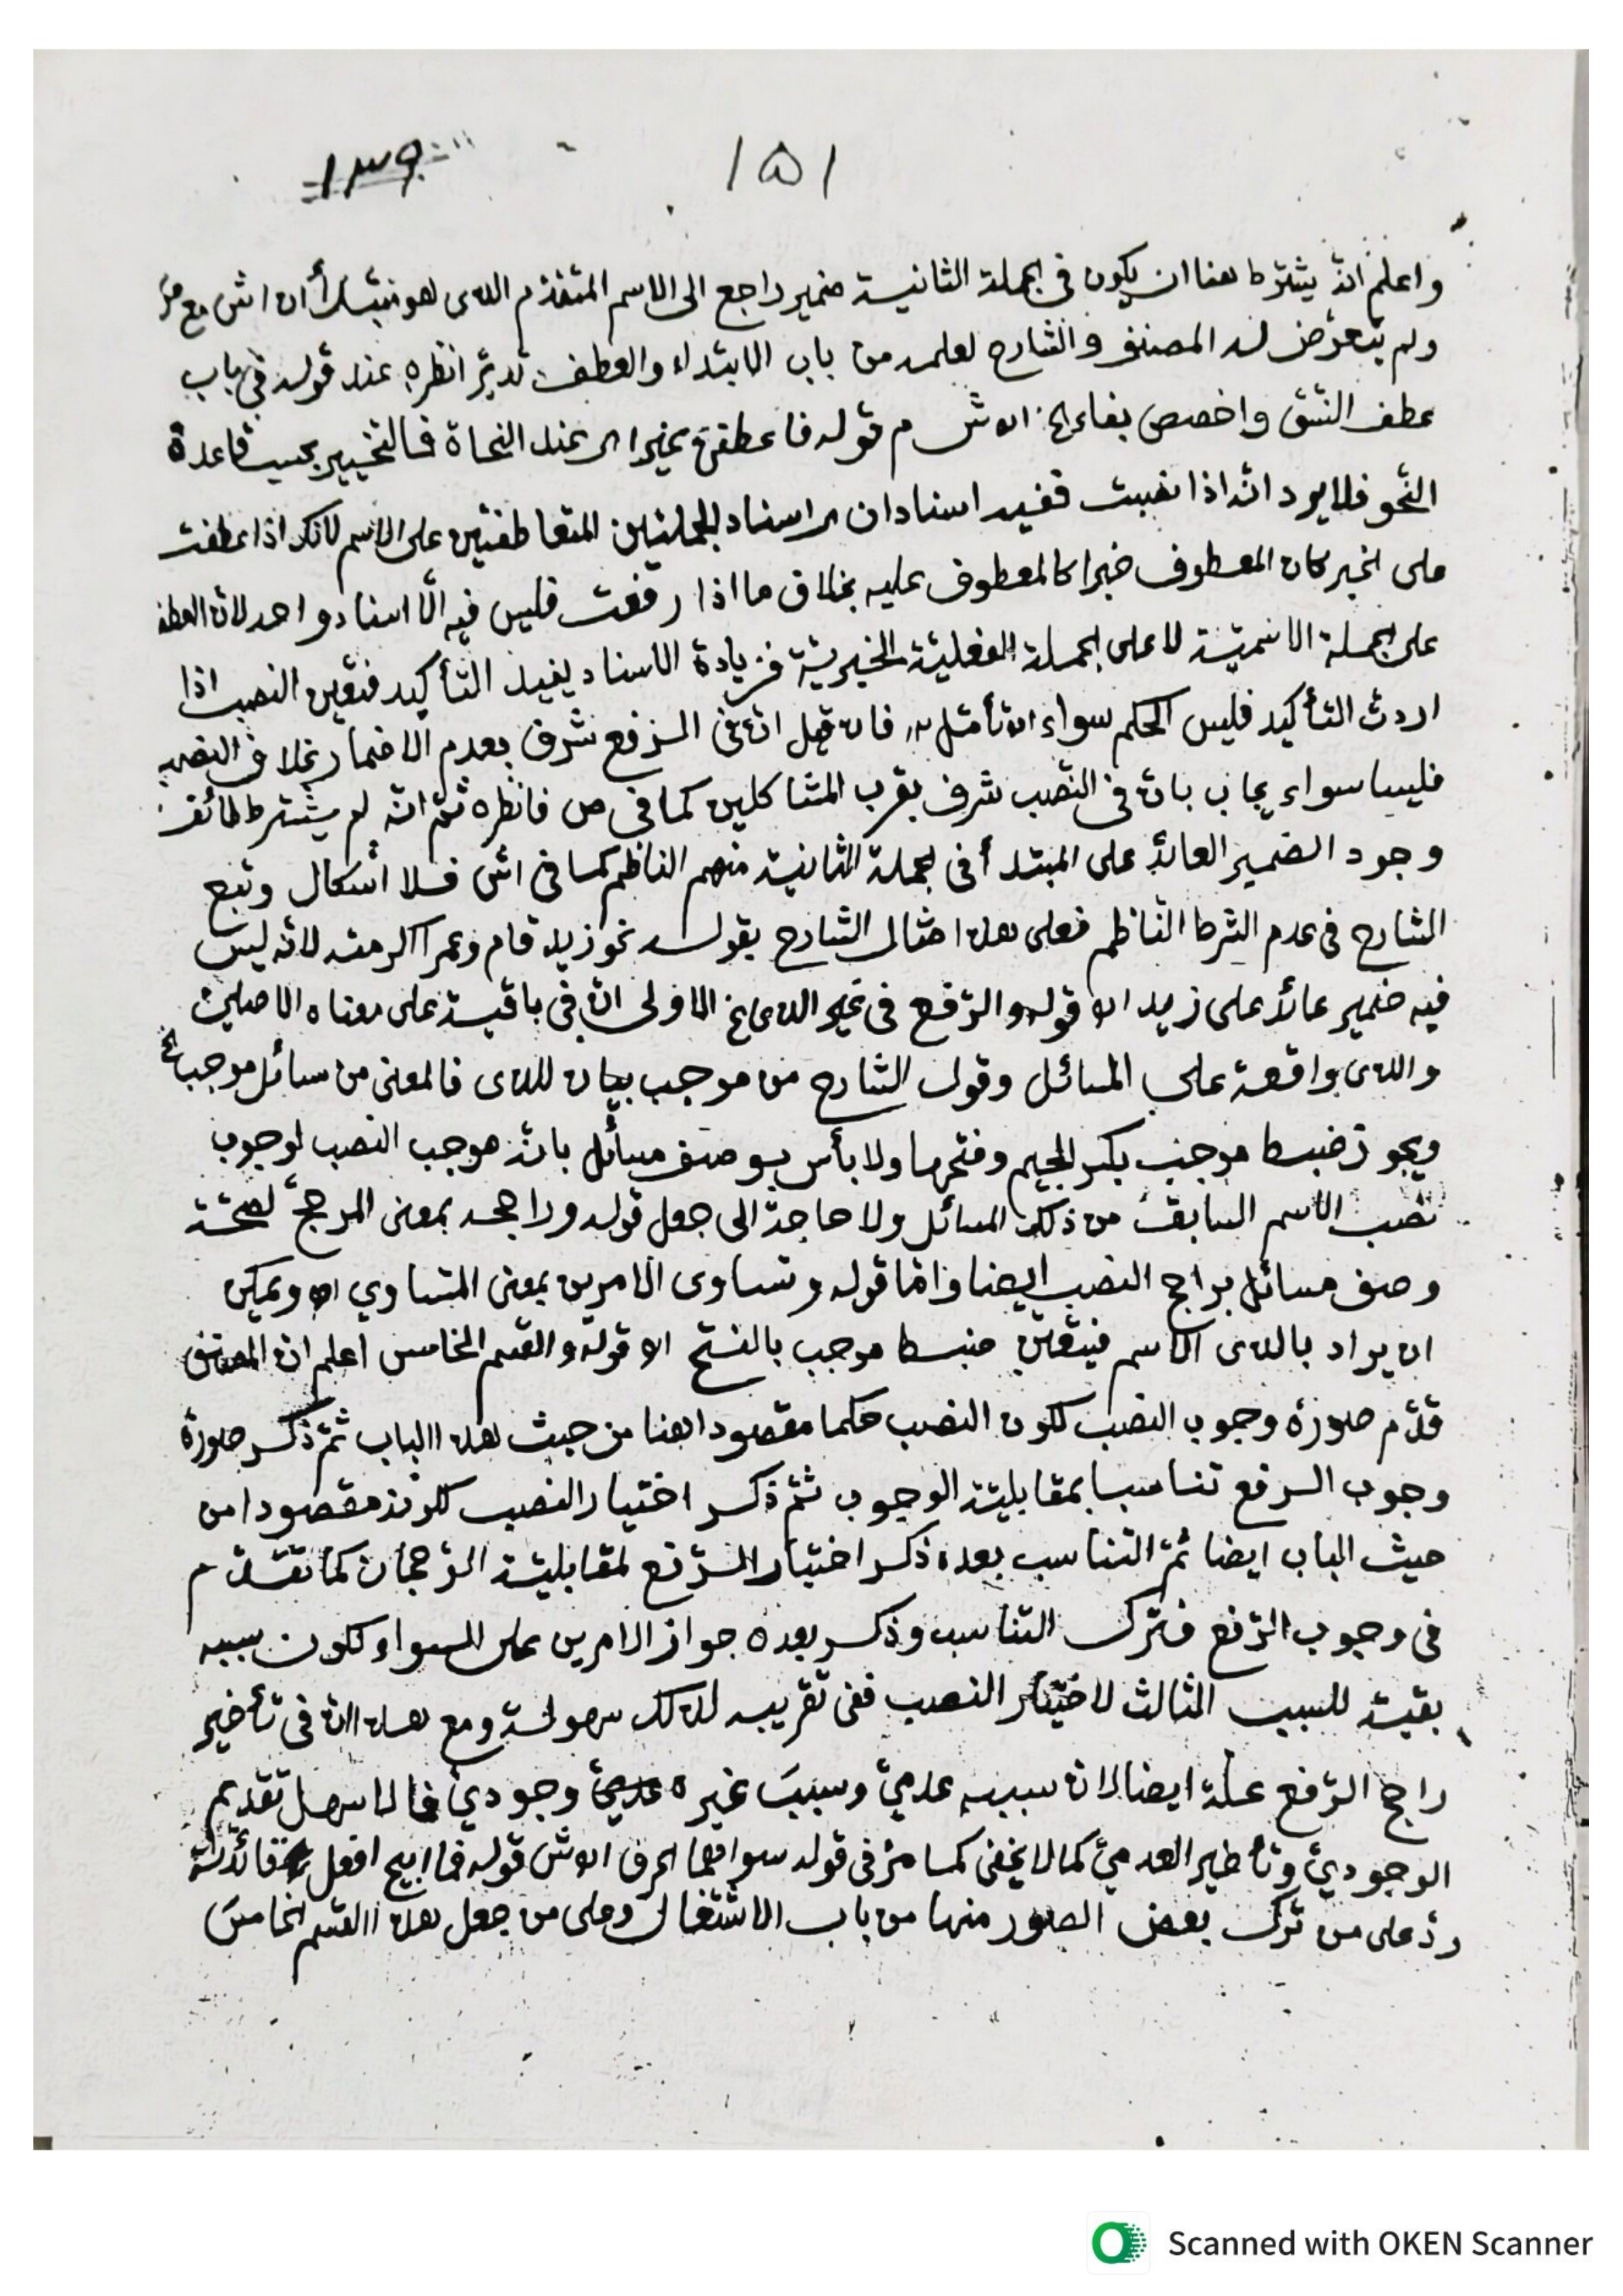 ١٣٩
١٥١
واعلم انه يشترط هنا ان يكون فى الجملة الثانية ضمير راجع الى الاسم المتقدم الذى هو مبتدأ ان اش مع
ولم يتعرض له المصنف والشارح لعلمه من باب الابتداء والعطف تدبر انظره عند قوله فى باب
عطف النسق واخصص بفاء الخ اه ش م قوله فاعطفن مخيرا اى عند النحاة فالتخيير بحسب قاعدة
النحو فلا يرد انه اذا نصبت ففيه اسنادان اى اسناد الجملتين المتعاطفتين على الاسم لانك اذا عطفت
على الخبر كان المعطوف خبرا كالمعطوف عليه بخلاف ما اذا رفعت فليس فيه الّا اسناد واحد لان العطف
على الجملة الاسمية لا على الجملة الفعلية الخبرية فزيادة الاسناد يفيد التأكيد فتعين النصب اذا
اردت التأكيد فليس الحكم سواء اه تأمل فان قيل انه فى الرفع شرف بعدم الاضمار بخلاف النصب
فليسا سواء يجاب بان فى النصب شرف بقرب المتشاكلين كما فى ص فانظره ثم انه لم يشترط طائفة
وجود الضمير العائد على المبتدأ فى الجملة الثانية منهم الناظم كما فى اش فلا اشكال وتبع
الشارح فى عدم الشرط الناظم فعلى هذا مثال الشارح بقوله نحو زيد قام وعمرا اكرمته لانه ليس
فيه ضمير عائد على زيد اه قوله والرفع فى غير الذى الخ الاولى ان فى باقية على معناه الاصلى
والذى واقعة على المسائل وقول الشارح من موجب بيان للذى فالمعنى من مسائل موجب الخ
ويجوز ضبط موجب بكسر الجيم وفتحها ولا بأس بوصف مسائل بانه موجب النصب لوجوب
نصب الاسم السابق من ذلك المسائل ولا حاجة الى جعل قوله وراجحه بمعنى المرجح لصحة
وصف مسائل براجح النصب ايضا واما قوله وتساوى الامرين بمعنى المتساوي اه ويمكن
ان يراد بالذى الاسم فيتعين ضبط موجب بالفتح اه قوله والقسم الخامس اعلم ان المصنف
قدّم صورة وجوب النصب لكون النصب حكما مقصودا هنا من حيث هذا الباب ثم ذكر صورة
وجوب الرفع تناسبا بمقابلية الوجوب ثم ذكر اختيار النصب لكونه مقصودا من
حيث الباب ايضا ثم التناسب بعده ذكر اختيار الرفع لمقابلية الرجحان كما تقدم
فى وجوب الرفع فترك التناسب وذكر بعده جواز الامرين على السواء لكون سببه
بقية للسبب الثالث لاختيار النصب ففى تقريبه لذلك سهولة ومع هذا ان فى تأخير
راجح الرفع علة ايضا لان سببه عدمي وسبب غيره وجودي فالاسهل تقديم
الوجودي وتأخير العدمي كما لا يخفى كما مر فى قوله سواهما الحرف اه ش قوله فما ابيح افعل فائدته
رد على من ترك بعض الصور منها من باب الاشتغال وعلى من جعل هذا القسم الخامس
Scanned with OKEN Scanner